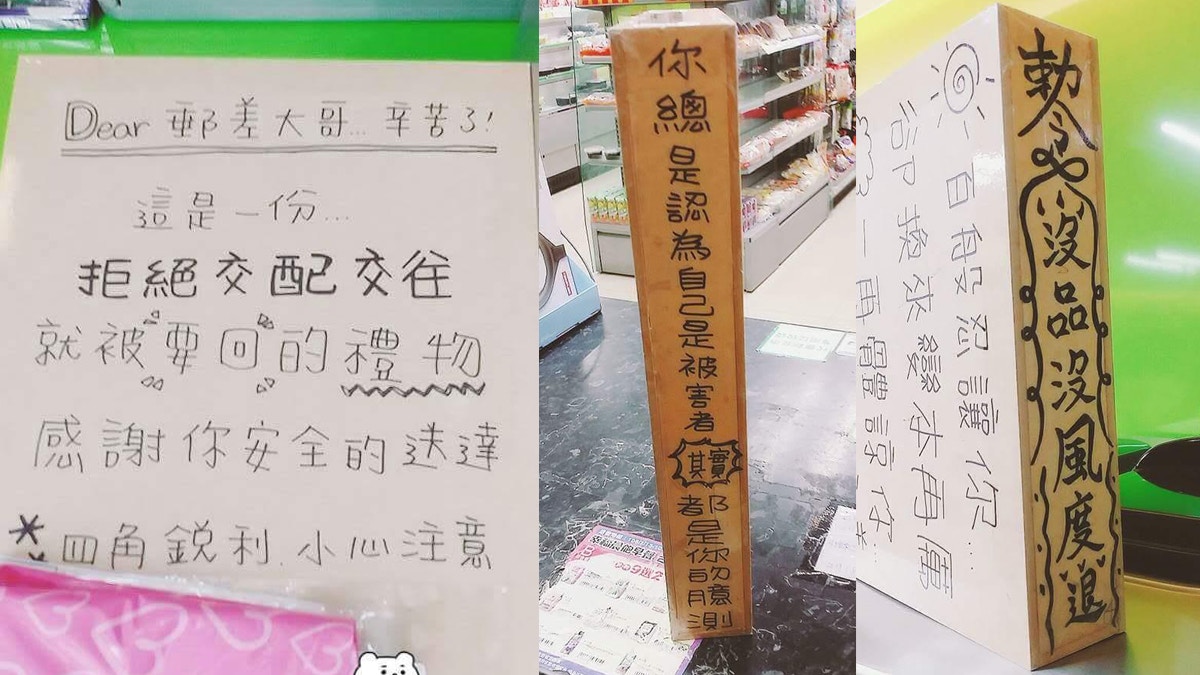 Dear 郵差大哥... 辛苦了!
這是一份...
拒絕交配交往
就被要回的禮物
感謝你安全的送達
* 四角銳利.小心注意
你總是認為自己是被害者
其實
都是你的臆測
敕令
沒品沒風度退
百般忍讓你...
卻換來變本再厲